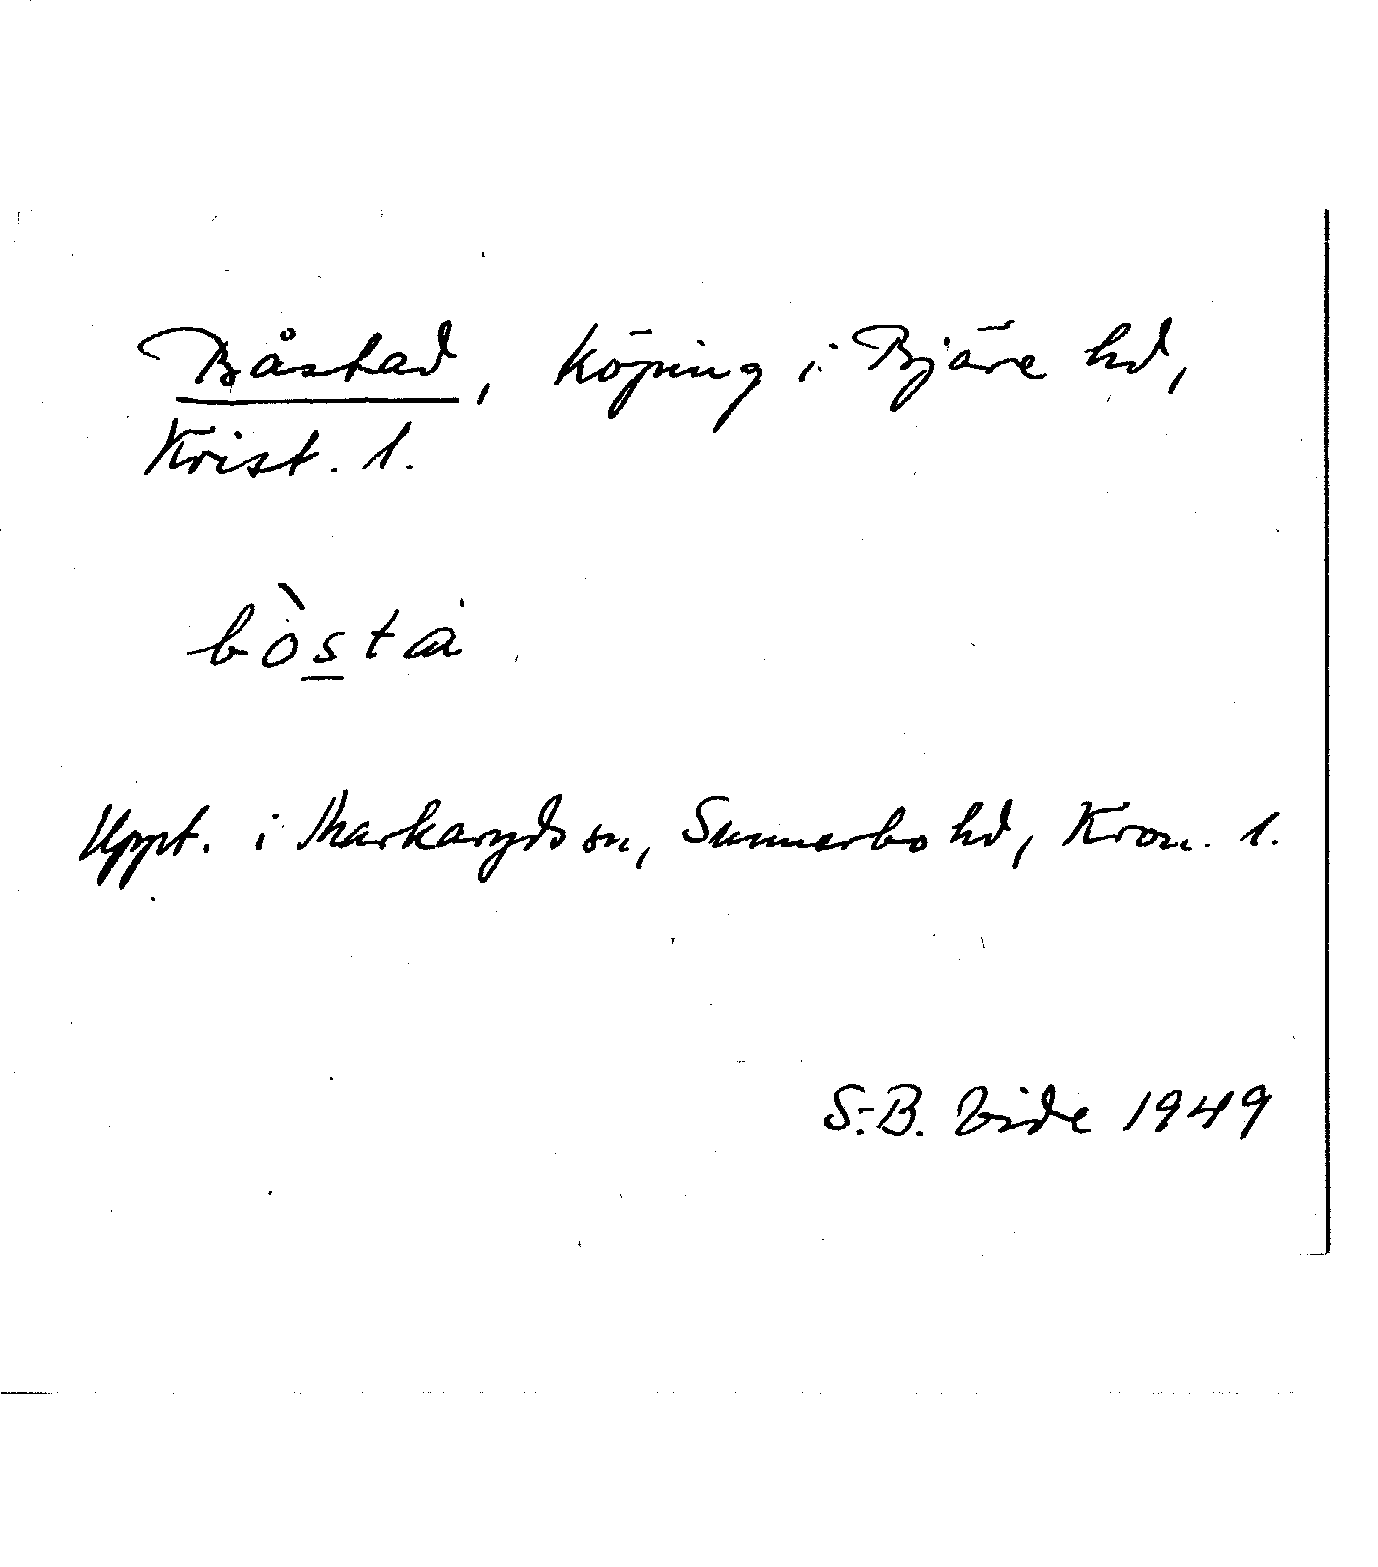 Båstad, köping i Bjäre hd,
Krist. l.
bòsta
Uppt. i Markaryds sn, Sunnerbo hd, Kron. l.
S.-B. Vide 1949